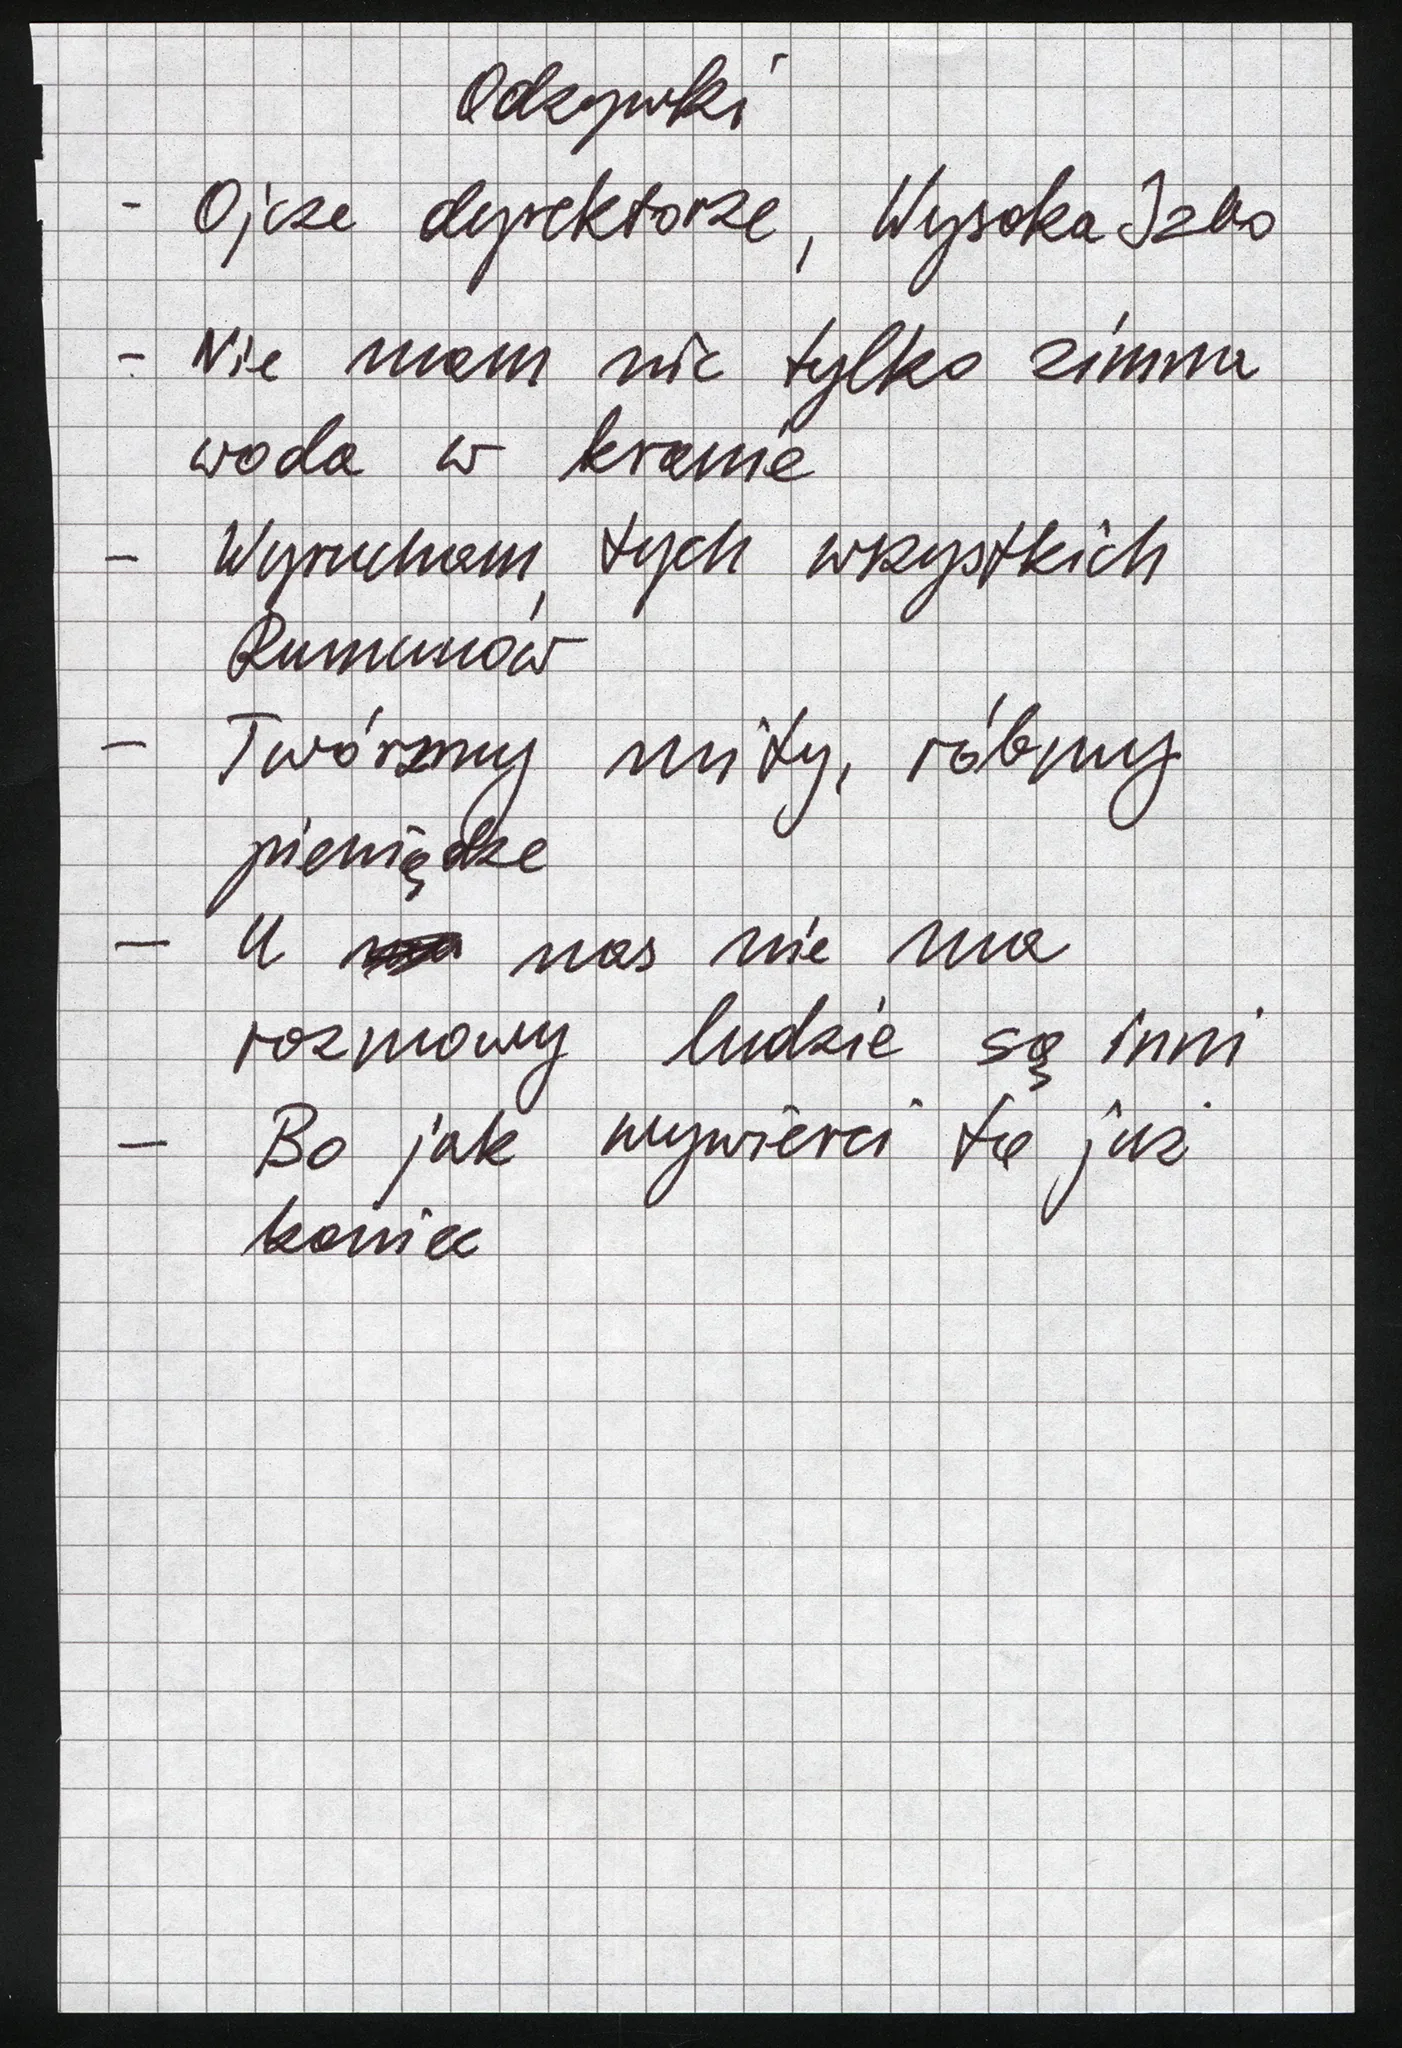 Odzywki
- Ojcze dyrektorze, Wysoka Izbo
- Nie mam nic tylko zimna
woda w kranie
- Wyrucham tych wszystkich
Rumunów
- Twórzmy mity, róbmy
pieniądze
- U nas nie ma
rozmowy ludzie są inni
- Bo jak wywierci to już
koniec